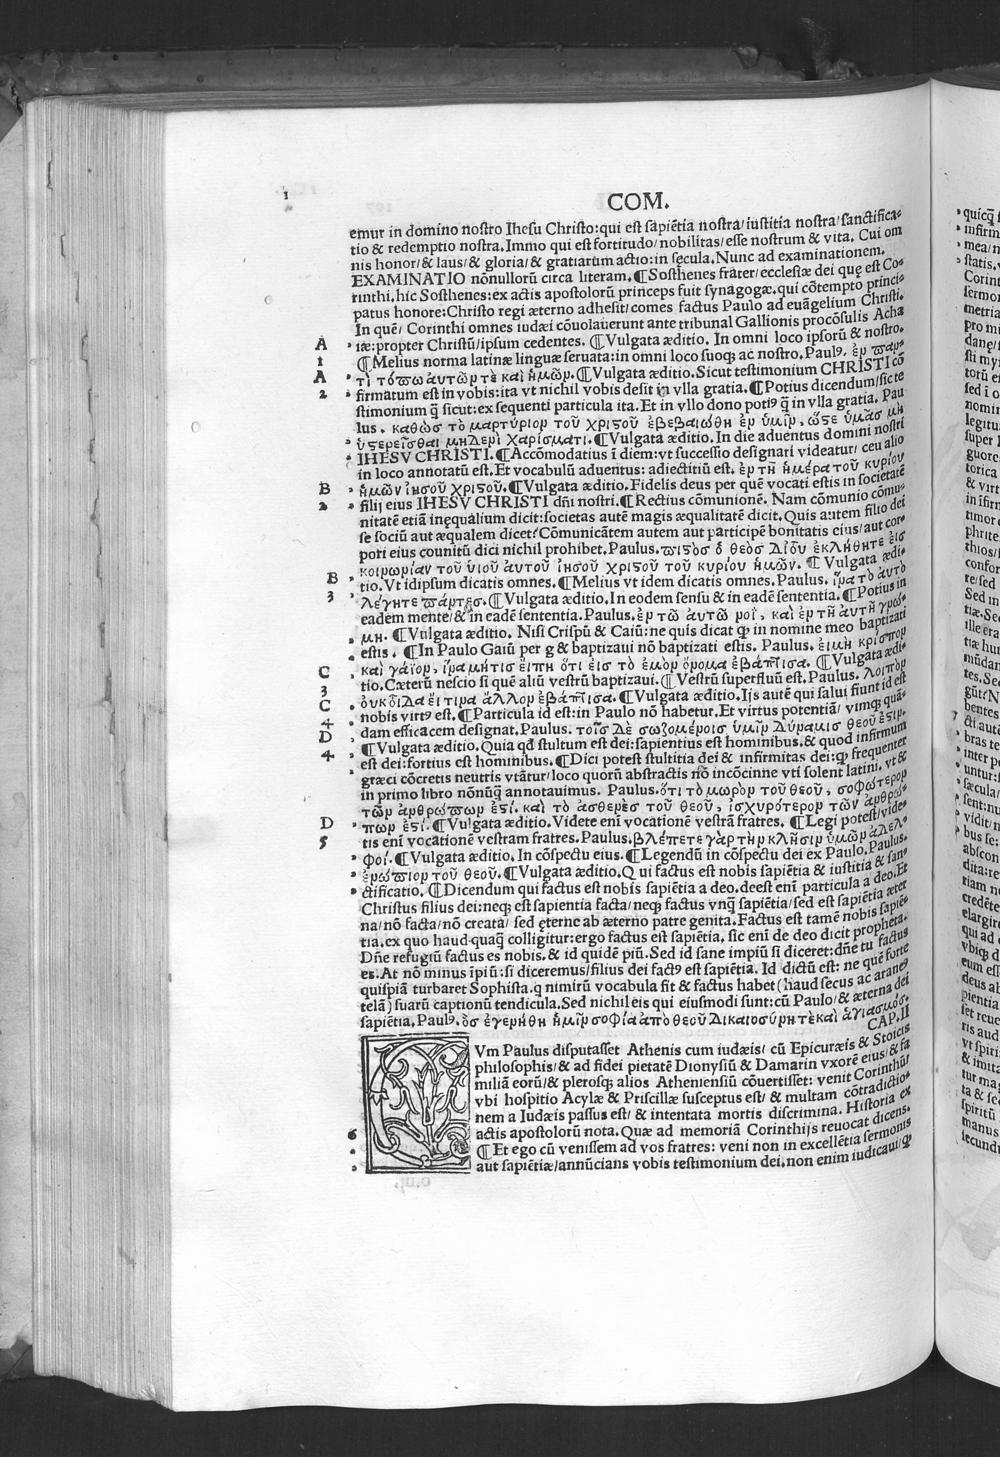 1
COM.
emur in domino nostro Ihesu Christo: qui est sapiētia nostra/ iustitia nostra/ sanctifica=
tio & redemptio nostra. Immo qui est fortitudo/ nobilitas/ esse nostrum & vita. Cui om
nis honor/ & laus/ & gloria/ & gratiarum actio: in sęcula. Nunc ad examinationem.
EXAMINATIO nōnullorū circa literam. ¶ Sosthenes frater/ ecclesiæ dei quę est Co=
rinthi. hic Sosthenes: ex actis apostolorū princeps fuit synagogæ. qui cōtempto princi=
patus honore: Christo regi æterno adhesit/ comes factus Paulo ad euāgelium Christi.
In quē/ Corinthi omnes iudæi cōuolauerunt ante tribunal Gallionis procōsulis Acha
A iæ: propter Christū/ ipsum cedentes. ¶ Vulgata æditio. In omni loco ipsorū & nostro.
1 ¶ Melius norma latinæ linguæ seruata: in omni loco suoq; ac nostro. Paulꝰ. ἐν παν=
A τὶ τόπω ἀυτῶν τὲ καὶ ἡμῶν. ¶ Vulgata æditio. Sicut testimonium CHRISTI cō
2 firmatum est in vobis: ita vt nichil vobis desit in vlla gratia. ¶ Potius dicendum/ sic te
stimonium q̄ sicut: ex sequenti particula ita. Et in vllo dono potiꝰ q̄ in vlla gratia. Pau
lus. καθὼς τὸ μαρτύριον τοῦ χριστοῦ ἐβεβαιώθη ἐν ὑμῖν, ὥστε ὑμᾶσ μὴ
ὑστερεῖσθαι μηδενὶ χαρίσματι. ¶ Vulgata æditio. In die aduentus domini nostri
IHESV CHRISTI. ¶ Accōmodatius ī diem: vt successio designari videatur/ ceu alio
in loco annotatū est. Et vocabulū aduentus: adiectitiū est. ἐν τῆ ἡμέρα τοῦ κυρίου
B ἡμῶν ἰησοῦ χριστοῦ. ¶ Vulgata æditio. Fidelis deus per quē vocati estis in societatē
2 filij eius IHESV CHRISTI dn̄i nostri. ¶ Rectius cōmunionē. Nam cōmunio cōmu=
nitatē etiā inęqualium dicit: societas autē magis æqualitatē dicit. Quis autem filio dei
se sociū aut æqualem dicet? Cōmunicātem autem aut participē bonitatis eius/ aut cor=
poti eius counitū dici nichil prohibet. Paulus. πιστὸσ ὁ θεὸσ δἰ οὗ ἐκλήθητε ἐισ
κοινωνίαν τοῦ υἱοῦ ἀυτοῦ ἰησοῦ χριστοῦ τοῦ κυρίου ἡμῶν. ¶ Vulgata ædi=
B tio. Vt idipsum dicatis omnes. ¶ Melius vt idem dicatis omnes. Paulus. ἵνα τὸ ἀυτὸ
3 λέγητε πάντεσ. ¶ Vulgata æditio. In eodem sensu & in eadē sententia. ¶ Potius in
eadem mente/ & in eadē sententia. Paulus. ἐν τῶ ἀυτῶ νοῒ, καὶ ἐν τῆ ἀυτῆ γνώ=
μη. ¶ Vulgata æditio. Nisi Crispū & Caiū: ne quis dicat ꝙ in nomine meo baptizati
estis. ¶ In Paulo Gaiū per g & baptizaui nō baptizati estis. Paulus. ἐι μὴ κρίσπον
C καὶ γάϊον, ἵνα μήτισ ἔιπη ὅτι ἐισ τὸ ἐμὸν ὄνομα ἐβάπτισα. ¶ Vulgata ædi=
3 tio. Cæterū nescio si quē aliū vestrū baptizaui. ¶ Vestrū superfluū est. Paulus. λοιπὸν
C ὀυκ ὅιδα ἔι τινα ἄλλον ἐβάπτισα. ¶ Vulgata æditio. Ijs autē qui salui fiunt id est
4 nobis virtꝰ est. ¶ Particula id est: in Paulo nō habetur. Et virtus potentiā/ vimq; quā=
D dam efficacem designat. Paulus. τοῖσ δὲ σωζομένοισ ὑμῖν δύναμισ θεοῦ ἐστιν.
¶ Vulgata æditio. Quia qd̄ stultum est dei: sapientius est hominibus. & quod infirmum
4 est dei: fortius est hominibus. ¶ Dici potest stultitia dei & infirmitas dei: ꝙ frequenter
græci cōcretis neutris vtātur/ loco quorū abstractis nō incōcinne vti solent latini. vt &
in primo libro nōnūq̄ annotauimus. Paulus. ὅτι τὸ μωρὸν τοῦ θεοῦ, σοφώτερον
τῶν ἀνθρώπων ἐστί. καὶ τὸ ἀσθενὲσ τοῦ θεοῦ, ἰσχυρότερον τῶν ἀνθρώ=
D πων ἐστί. ¶ Vulgata æditio. Videte eni vocationē vestrā fratres. ¶ Legi potest/ vide=
5 tis eni vocationē vestram fratres. Paulus. βλέπετε γὰρ τὴν κλῆσιν ὑμῶν ἀδελ=
φοί. ¶ Vulgata æditio. In cōspectu eius. ¶ Legendū in cōspectu dei ex Paulo. Paulus.
ἐνώπιον τοῦ θεοῦ. ¶ Vulgata æditio. Qui factus est nobis sapiētia & iustitia & san=
ctificatio. ¶ Dicendum qui factus est nobis sapiētia a deo. deest eni particula a deo. Et
Christus filius dei: neq; est sapientia facta/ neq; factus vnq̄ sapiētia/ sed est sapiētia æter
na/ nō facta/ nō creata/ sed ęterne ab æterno patre genita. Factus est tamē nobis sapiē=
tia. ex quo haud quaq̄ colligitur: ergo factus est sapiētia. sic eni de deo dicit propheta.
Dn̄e refugiū factus es nobis. & id quidē piū. Sed id sane impiū si diceret: dn̄e tu factus
es. At nō minus īpiū: si diceremus/ filius dei factꝰ est sapiētia. Id dictū est: ne quē forte
quispiā turbaret Sophista. q nimirū vocabula fit & factus habet (haud secus ac araneꝰ
telā) suarū captionū tendicula. Sed nichil eis qui eiusmodi sunt: cū Paulo/ & æterna dei
sapiētia. Paulꝰ. ὃσ ἐγενήθη ἡμῖν σοφία ἀπὸ θεοῦ δικαιοσύνη τὲ καὶ ἁγιασμόσ.
CAP. II
CVm Paulus disputasset Athenis cum iudæis/ cū Epicuræis & Stoicis
philosophis/ & ad fidei pietatē Dionysiū & Damarin vxorē eius/ & fa
miliā eorū/ & plerosq; alios Atheniensiū cōuertisset: venit Corinthū/
vbi hospitio Acylæ & Priscillæ susceptus est/ & multam cōtradictio=
nem a Iudæis passus est/ & intentata mortis discrimina. Historia ex
6 actis apostolorū nota. Quæ ad memoriā Corinthijs reuocat dicens.
¶ Et ego cū venissem ad vos fratres: veni non in excellētia sermonis
aut sapiētiæ/ annūcians vobis testimonium dei. non enim iudicaui/ ꝙ